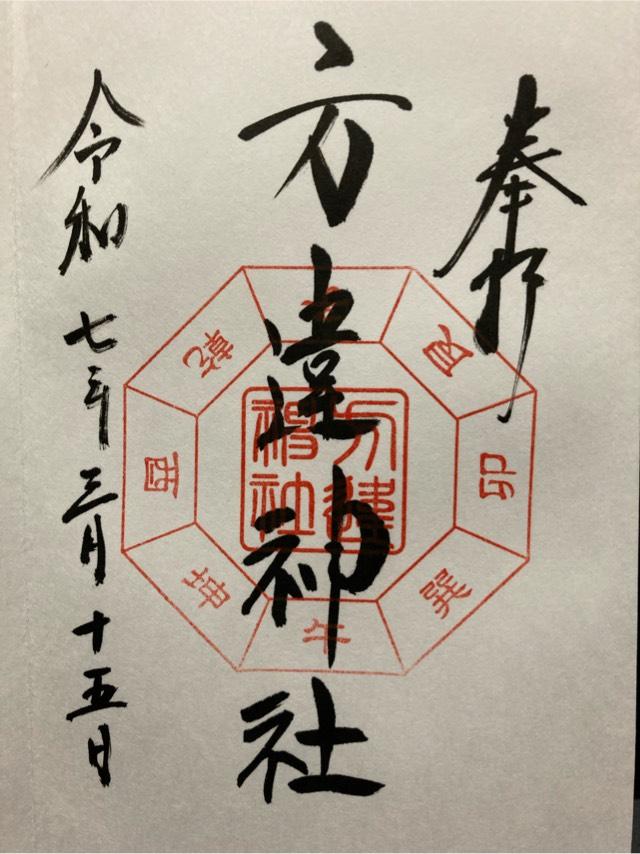 奉拝
方違神社
令和七年三月十五日
方違
神社
艮
卯
巽
午
坤
酉
乾